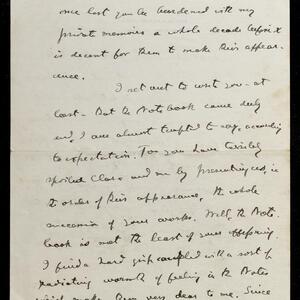 once lost you be burdened with my
private memoirs a whole decade before it
is decent for them to make their appear-
ance.
I set out to write you - at
last - But the Note book came duly
and I am almost tempted to say, according
to expectation. For you have terribly
spoiled Clara and me by presenting us, in
the order of their appearance, the whole
succession of your works. Well, the Note-
book is not the least of your offspring.
I find a hard grip coupled with a sort of
radiating warmth of feeling in the Notes
which make them very dear to me. Since